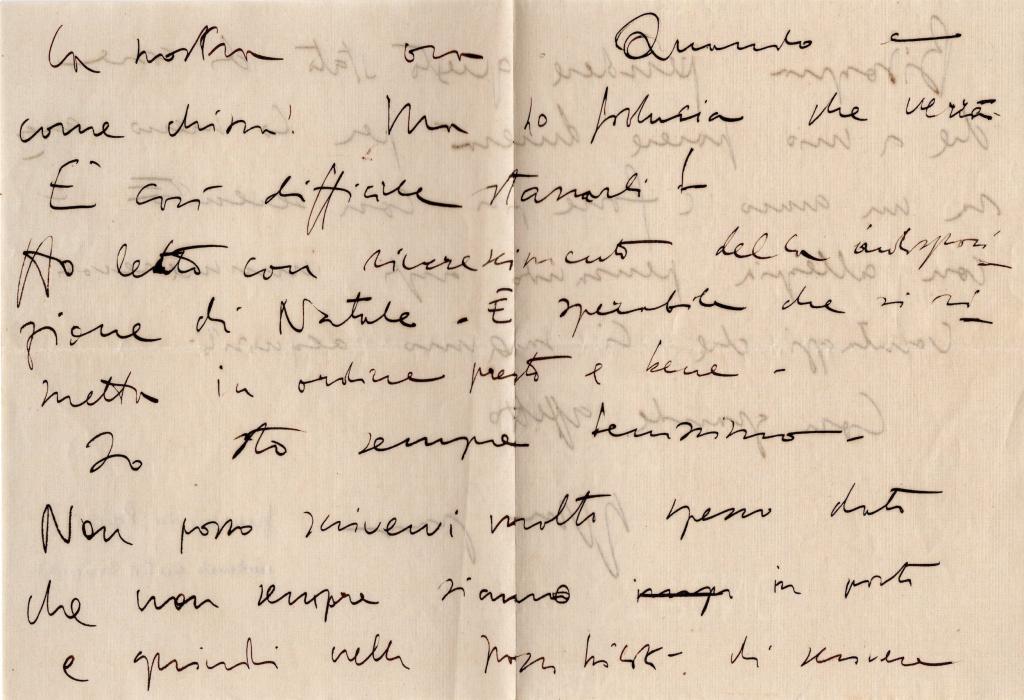 la nostra ora Quando e
come chissà! Ma ho fiducia che verrà.
È così difficile stanarli!
Ho letto con rincrescimento della indisposi
zione di Natale - È sperabile che si ri
metta in ordine presto e bene -
Io sto sempre benissimo -
Non posso scrivervi molto spesso dato
che non sempre siamo in porto
e quindi nella possibilità di scrivere